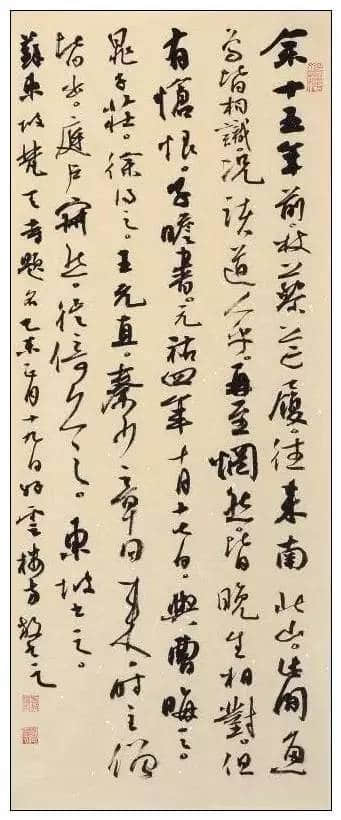 余十五年前。杖藜芒履。往来南北山。此間魚
鸟皆相識。况諸道人乎。再至惘然。皆晚生相對。但
有愴恨。子瞻書。元祐四年十月十七日。與曹晦之。
晁子莊。徐得之。王元直。秦少章同来。時主僧
皆出。庭户寂然。徙倚久之。東坡
蘇東坡梵天寺題名乙未正月十九日雲樓方